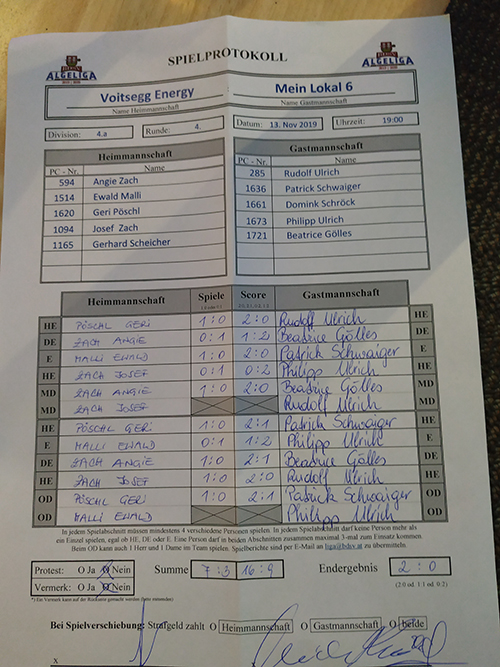 SPIELPROTOKOLL
ALGELIGA ALGELIGA
Voitsegg Energy Mein Lokal 6
Name Heimmannschaft Name Gastmannschaft
Division: 4.a Runde: 4. Datum: 13. Nov 2019 Uhrzeit: 19:00
Heimmannschaft Gastmannschaft
PC - Nr. Name PC - Nr. Name
594 Angie Zach 285 Rudolf Ulrich
1514 Ewald Malli 1636 Patrick Schwaiger
1620 Geri Pöschl 1661 Domink Schröck
1094 Josef Zach 1673 Philipp Ulrich
1165 Gerhard Scheicher 1721 Beatrice Gölles
Heimmannschaft Spiele Score Gastmannschaft
HE PÖSCHL GERI 1:0 2:0 Rudolf Ulrich HE
DE ZACH ANGIE 0:1 1:2 Beatrice Gölles DE
E MALLI EWALD 1:0 2:0 Patrick Schwaiger E
HE ZACH JOSEF 0:1 0:2 Philipp Ulrich HE
MD ZACH ANGIE 1:0 2:0 Beatrice Gölles MD
MD ZACH JOSEF Rudolf Ulrich MD
HE PÖSCHL GERI 1:0 2:1 Patrick Schwaiger HE
E MALLI EWALD 0:1 1:2 Philipp Ulrich E
DE ZACH ANGIE 1:0 2:1 Beatrice Gölles DE
HE ZACH JOSEF 1:0 2:0 Rudolf Ulrich HE
OD PÖSCHL GERI 1:0 2:1 Patrick Schwaiger OD
OD MALLI EWALD Philipp Ulrich OD
In jedem Spielabschnitt müssen mindestens 4 verschiedene Personen spielen. In jedem Spielabschnitt darf keine Person mehr als
ein Einzel spielen, egal ob HE, DE oder E. Eine Person darf in beiden Abschnitten zusammen maximal 3-mal zum Einsatz kommen.
Beim OD kann auch 1 Herr und 1 Dame im Team spielen. Spielberichte sind per E-Mail an liga@bdsv.at zu übermitteln.
Protest: O Ja O Nein Summe 7:3 16:9 Endergebnis 2:0
Vermerk: O Ja O Nein (2:0 od. 1:1 od. 0:2)
*) Ein Vermerk kann auf der Rückseite gemacht werden (bitte umwenden)
Bei Spielverschiebung: Strafgeld zahlt O Heimmannschaft O Gastmannschaft O beide
X